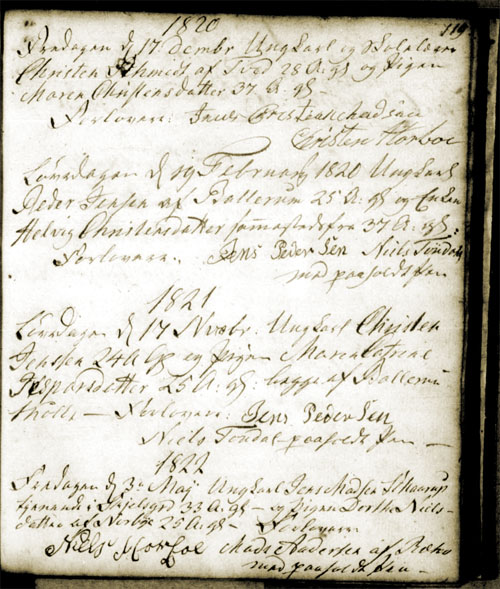 1820
119
Fredagen d 17 Decembr Ungkarl og Skolelærer
Christen Schmidt af Tved 28 A: gl og Pigen
Maren Christensdatter 37 A: gl -
Forlovere: Jens Christian
Christen Horboe
Løverdagen d 19 February 1820 Ungkarl
Peder Jensen af Ballerum 25 A: gl og Enken
Helvig Christensdatter sammestedsfra 37 A: gl:
Forlovere: Jens Peder Sen Niels Tondal
med paaholdt Pen
1821
Løverdagen d 17 Novbr. Ungkarl Christen
Jenssen 24 A gl og Pigen Maren Catrine
Jespersdatter 25 A: gl: begge af Ballerum
- Forlovere: Jens Peder Sen
Niels Tondal paaholdt Pen -
1822
Fredagen d 3 Maj Ungkarl Jens Madsen Schaarup
tjenende i 33 A: gl - og Pigen Dorthe Niels-
datter af Nørbye 25 A: gl - Forlovere
Niels Horboe Mads Andersen af
med paaholdt Pen -